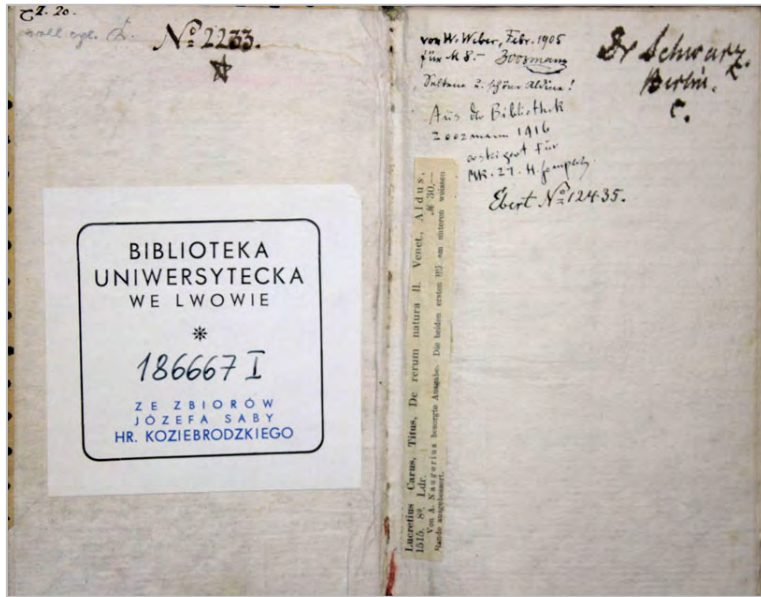 CI. 20.
coll. cpl.
№ 2233.
BIBLIOTEKA
UNIWERSYTECKA
WE LWOWIE
186667 I
ZE ZBIORÓW
JÓZEFA SABY
HR. KOZIEBRODZKIEGO
von W. Weber, Febr. 1905
für M 8.– Zoozmann
Seltene u. schöne Aldine!
Aus der Bibliothek
Zoozmann 1916
ersteigert für
Mk. 27. H. Gomperz.
Ebert № 12435.
Dr Schwarz.
Berlin.
C.
Lucretius Carus, Titus, De rerum natura ll. Venet., Aldus,
1515. 8º. Ldr. ℳ 30,—
Von A. Naugerius besorgte Ausgabe. Die beiden ersten Bll am unteren weissen
Rande ausgebessert.